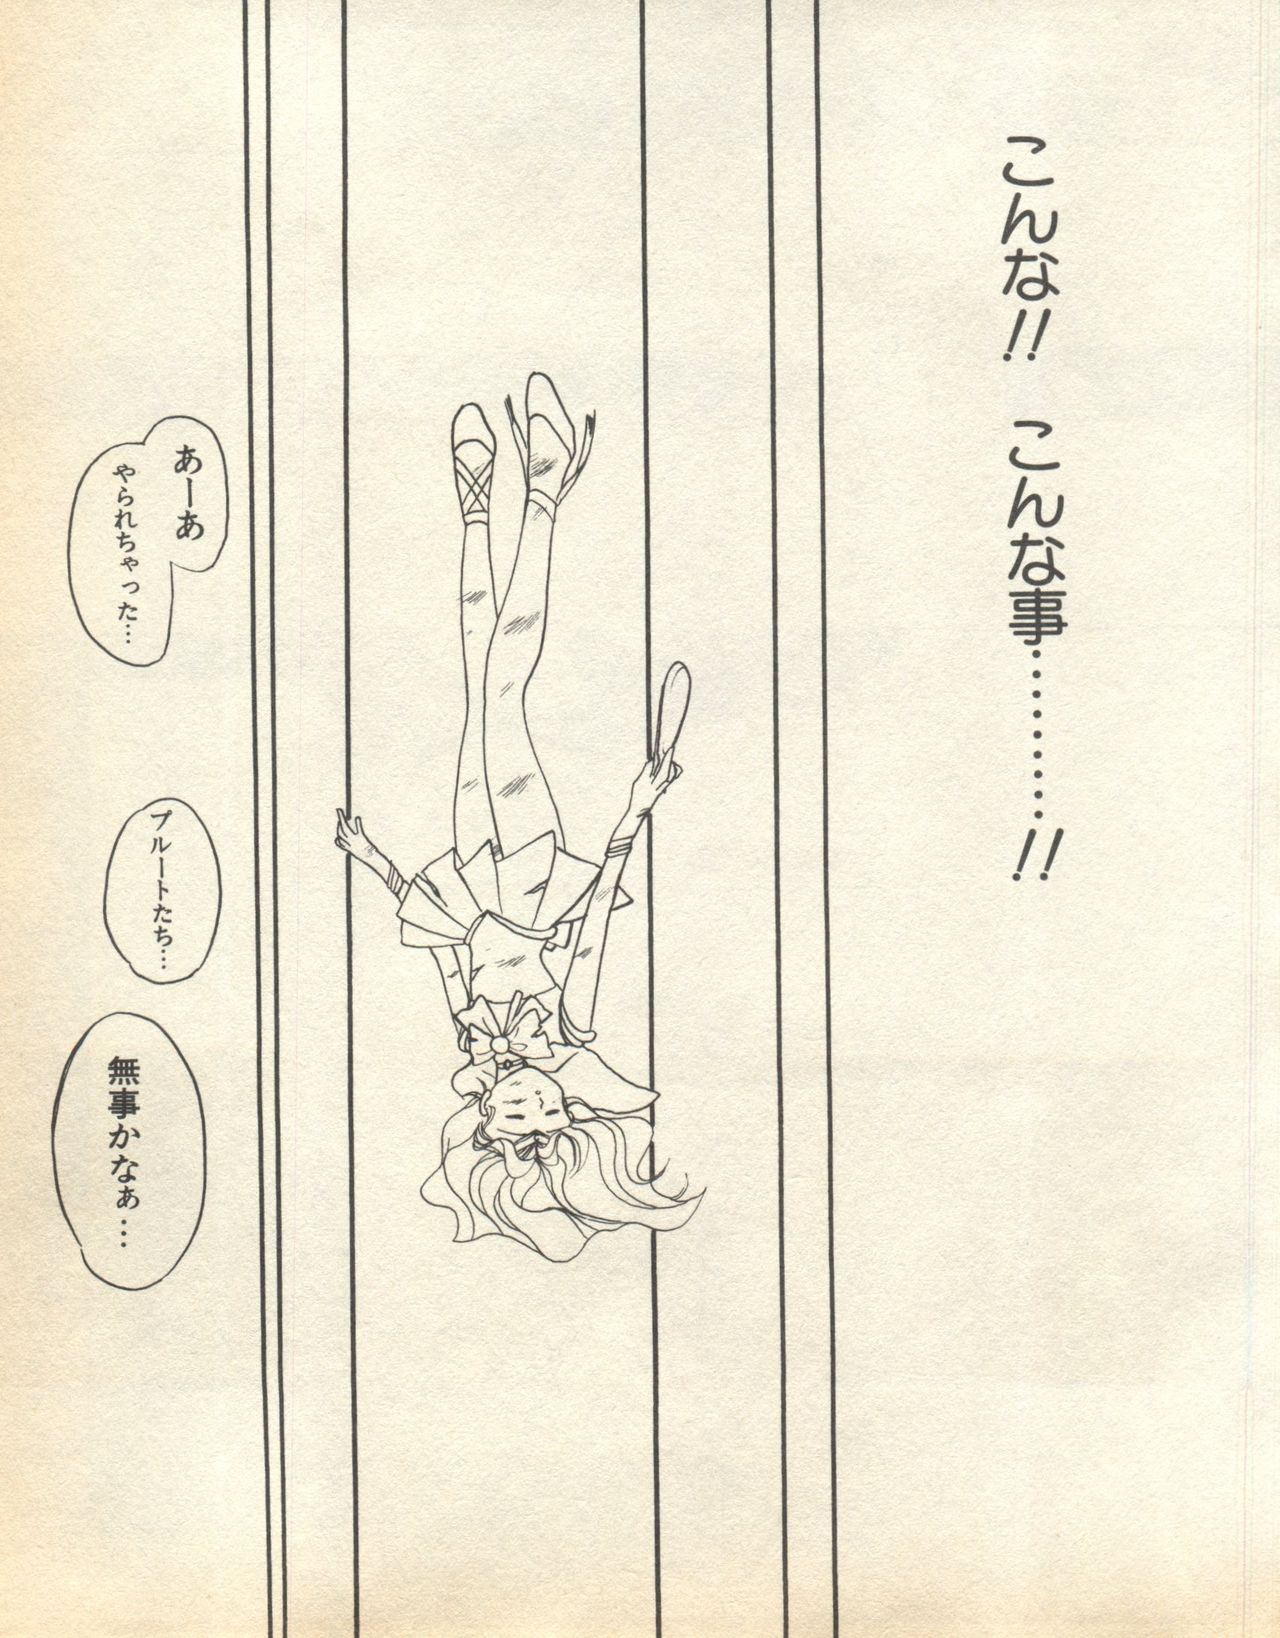 こんな!! こんな事………!!
あーあ
やられちゃった…
プルートたち…
無事かなぁ…